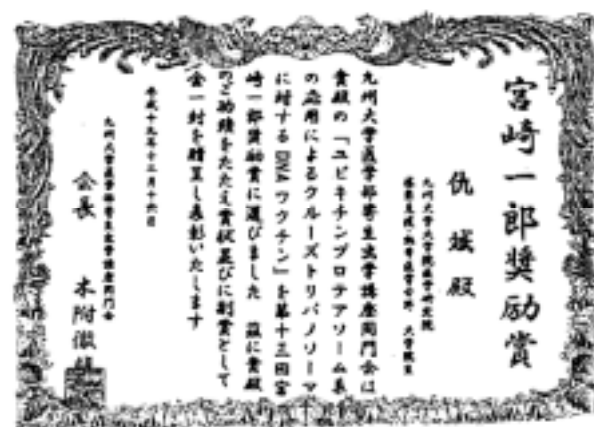 宮崎一郎奨励賞
九州大学大学院医学研究院
大学院生
仇 殿
九州大学医学部寄生虫学講座同門会は
貴殿の「ユビキチンプロテアソーム系
の応用によるクルーズトリパノソーマ
に対するDNAワクチン」を第十三回宮
崎一郎奨励賞に選びました 茲に貴殿
のご功績をたたえ賞状並びに副賞として
金一封を贈呈し表彰いたします
平成十九年十二月十六日
九州大学医学部寄生虫学講座同門会
会長 木附